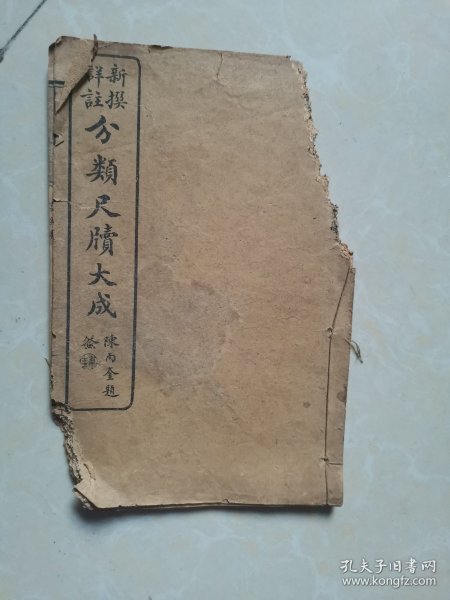 新撰
詳註
分類尺牘大成
陳丙奎題
簽
孔夫子旧书网
www.kongfz.com